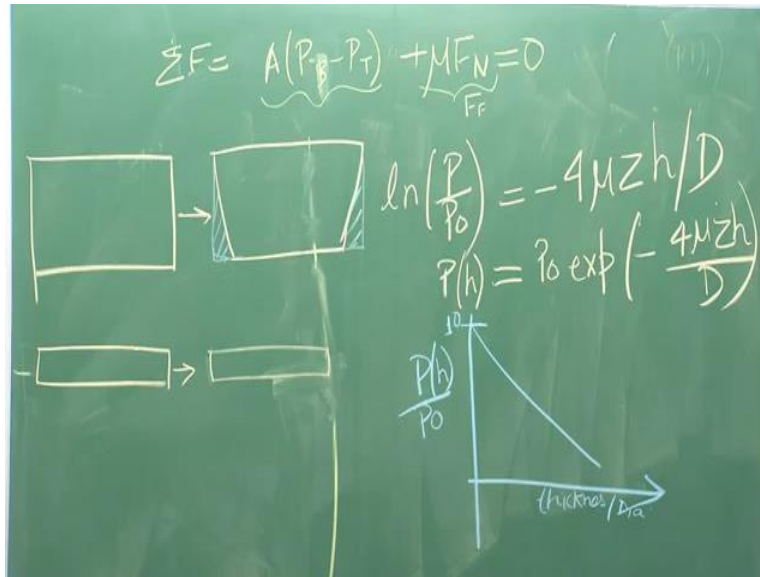 ΣF = A(P_B - P_T) + μF_N = 0
F_F
ln(P/P0) = -4μzh/D
P(h) = P0 exp(-4μzh/D)
1.0
P(h)/P0
thicknes/Dia